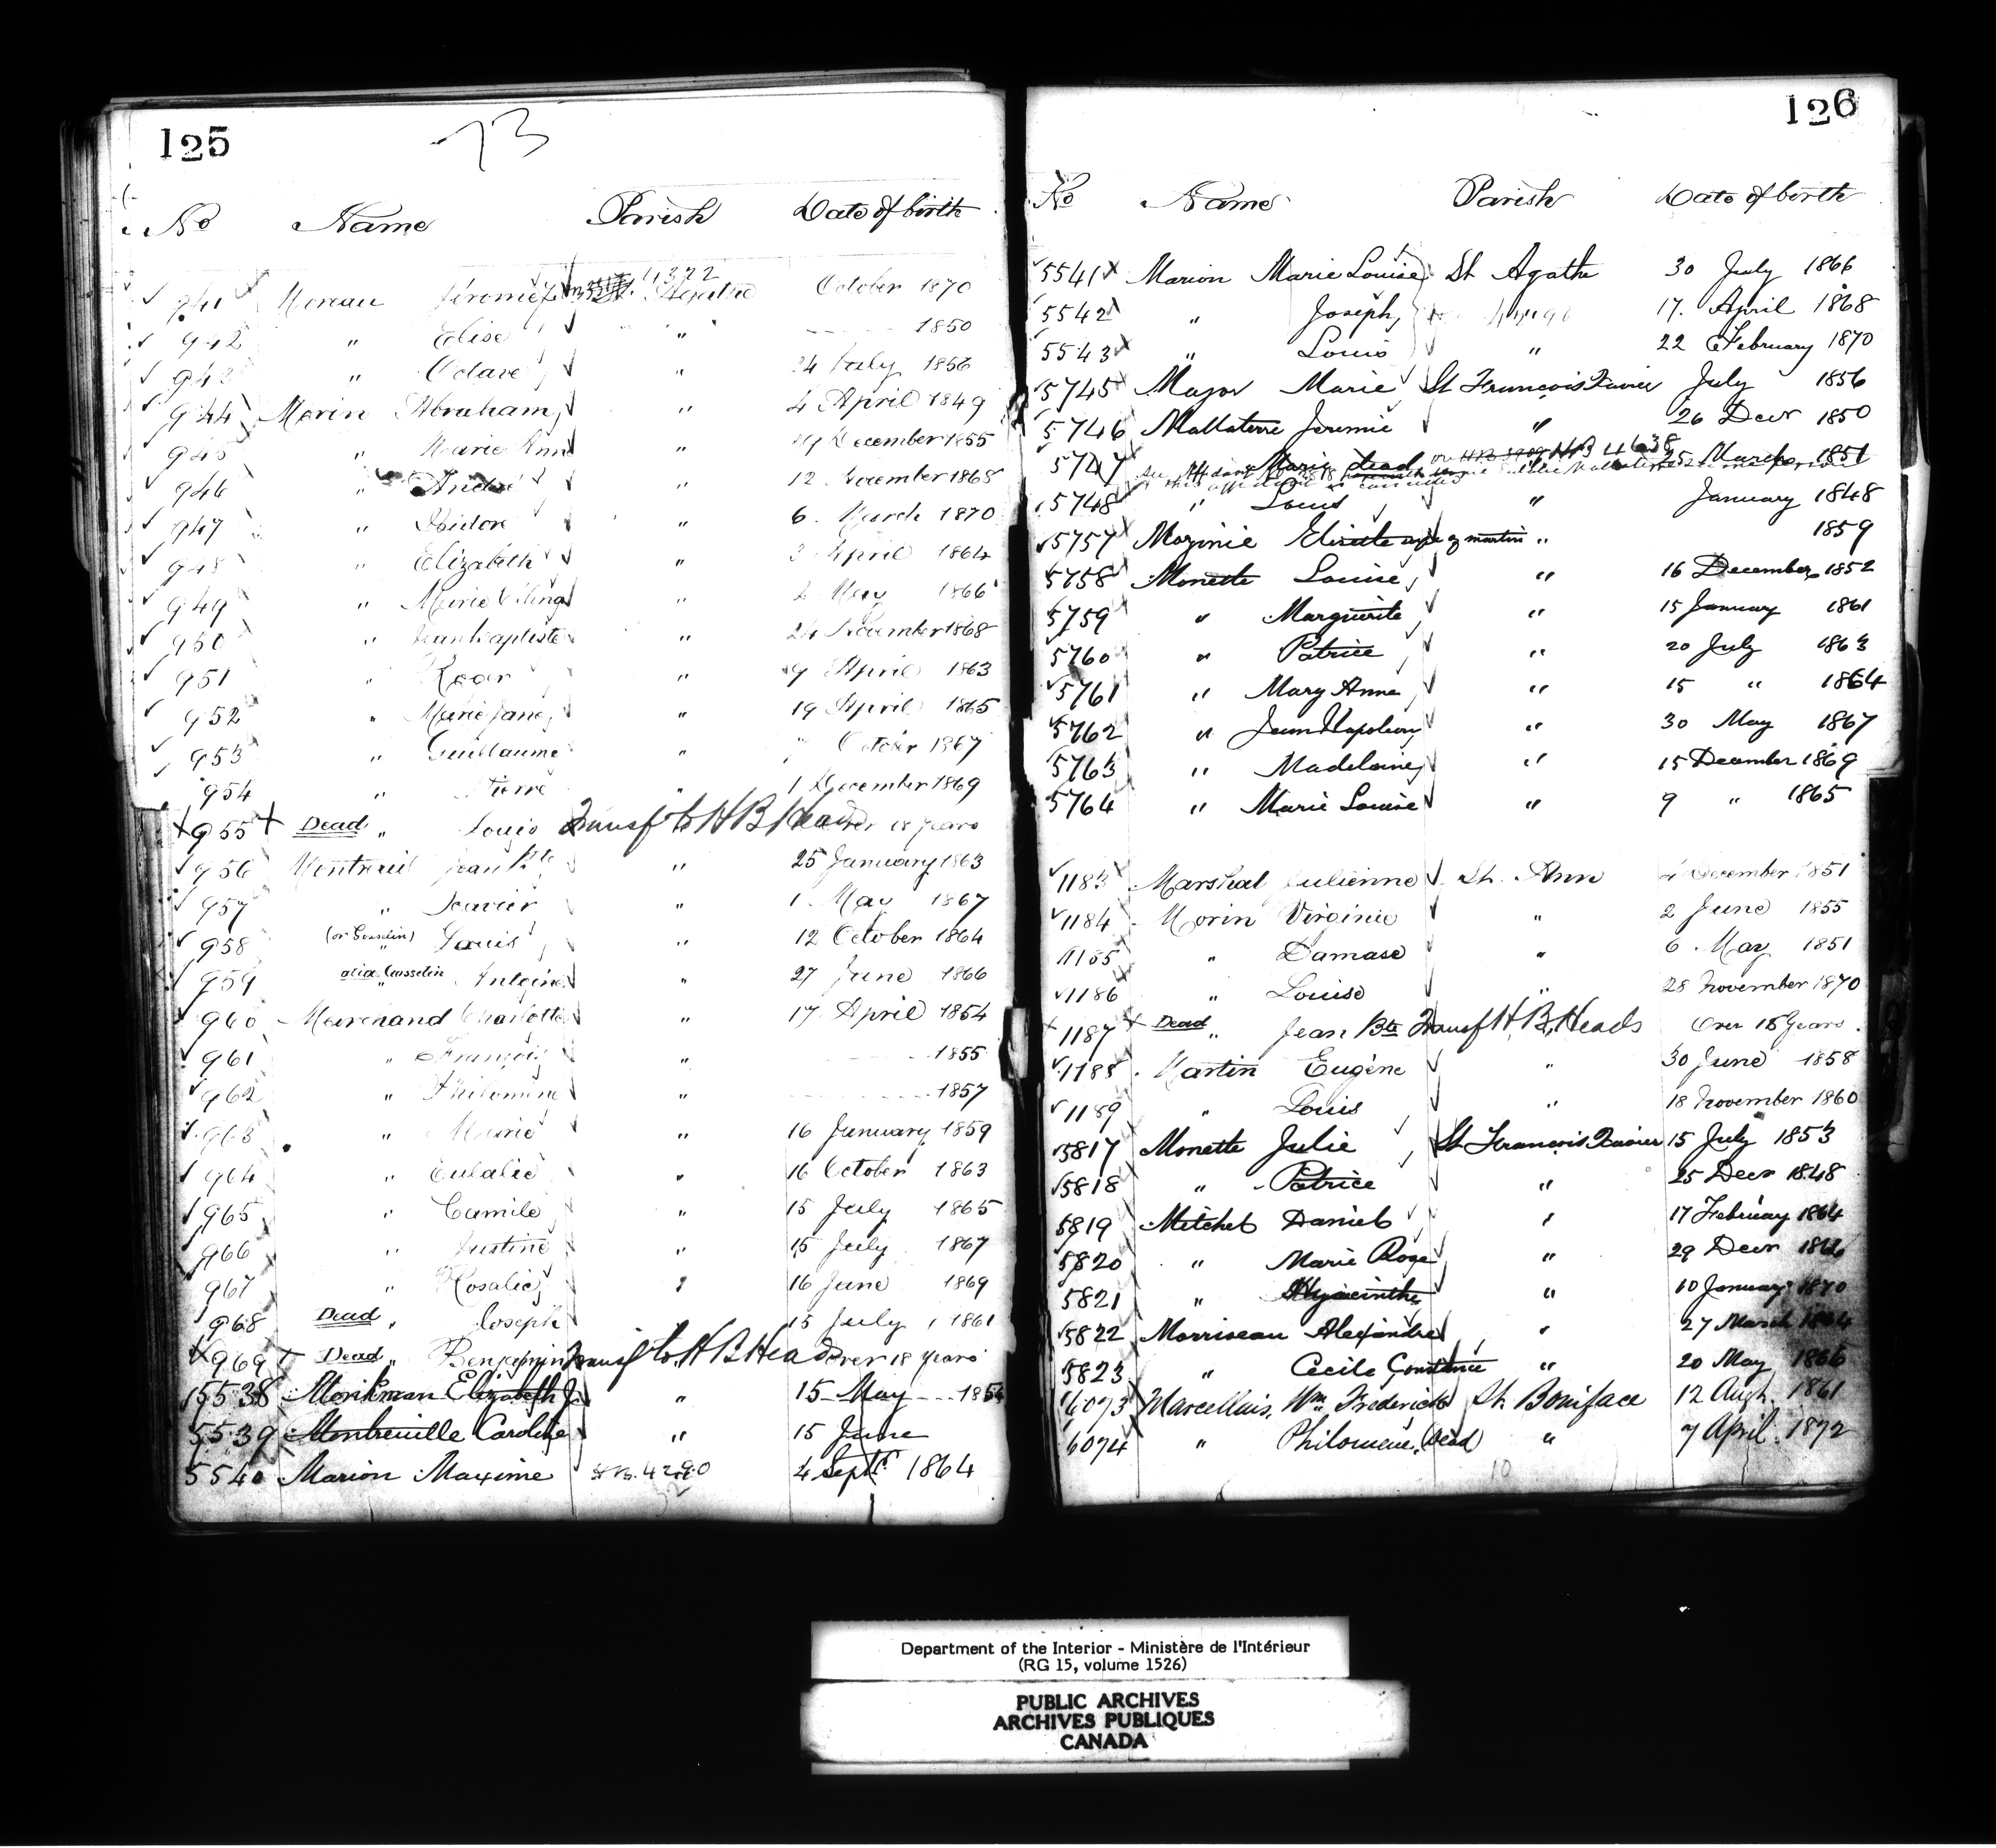 125
73
No Name Parish Date of birth
941 Moreau Jeromie 4322 St. Agathe October 1870
942 " Elise " 1850
943 " Octave " 24 July 1856
944 Morin Abraham " 4 April 1849
945 " Marie Ann " December 1855
946 " André " 12 November 1868
947 " Isidore " 6 March 1870
948 " Elizabeth " April 1864
949 " Marie " 2 May 1866
950 " Jean Baptiste " 24 November 1868
951 " Roger " 9 April 1863
952 " Marie Jane " 19 April 1865
953 " Guillaume " October 1867
954 " Pierre " 1 December 1869
955 Dead " Louis Transf to H B Heads over 18 years
956 Montreuil Jean Bte " 25 January 1863
957 " Xavier " 1 May 1867
958 (or Gosselin) " Louis " 12 October 1864
959 alias Gosselin " Antoine " 27 June 1866
960 Marchand Charlotte " 17 April 1854
961 " François " 1855
962 " Philomene " 1857
963 " Marie " 16 January 1859
964 " Eulalie " 16 October 1863
965 " Camile " 15 July 1865
966 " Justine " 15 July 1867
967 " Rosalie " 16 June 1869
968 Dead " Joseph 15 July 1861
969 Dead " Benjamin Transf to H B Heads over 18 years
5538 Monkman Elizabeth J. " 15 May 1854
5539 Montreuille Caroline " 15 June
5540 Marion Maxime 4290 4 Sept. 1864
126
No Name Parish Date of birth
5541 Marion Marie Louise St Agathe 30 July 1866
5542 " Joseph 17. April 1868
5543 " Louis " 22 February 1870
5745 Major Marie St François Xavier July 1856
5746 Mallaterre Jeremie " 26 Decr 1850
5747 Marie dead HB 4638 25 March 1851
5748 " Louis " January 1848
5757 Mozinie Elisente wife of martin " 1859
5758 Monette Louise " 16 December 1852
5759 " Marguerite " 15 January 1861
5760 " Patrice " 20 July 1863
5761 " Mary Anne " 15 " 1864
5762 " Jean Napoleon " 30 May 1867
5763 " Madeleine " 15 December 1869
5764 " Marie Louise " 9 " 1865
1183 Marshal Julienne St. Ann 4 December 1851
1184 Morin Virginie " 2 June 1855
1185 " Damase " 6 May 1851
1186 " Louise " 28 November 1870
1187 Dead " Jean Bte Transf H, B, Heads Over 18 Years
1188 Martin Eugène " 30 June 1858
1189 " Louis " 18 November 1860
5817 Monette Julie St François Xavier 15 July 1853
5818 " Patrice " 25 Decr 1848
5819 Mitchel Daniel " 17 February 1864
5820 " Marie Rose " 29 Decr 1866
5821 " Hyacinthe " 10 January 1870
5822 Morriseau Alexandre " 27 March 1864
5823 " Cecile Constance " 20 May 1866
6073 Marcellais, Wm. Frederick St. Boniface 12 Augt. 1861
6074 " Philomene, (Dead) " 7 April. 1872
10
Department of the Interior - Ministère de l'Intérieur
(RG 15, volume 1526)
PUBLIC ARCHIVES
ARCHIVES PUBLIQUES
CANADA